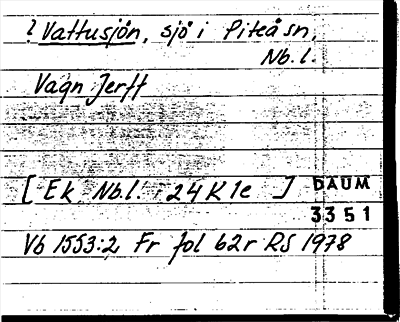 ? Vattusjön, sjö i Piteå sn,
Nb. l.
Vagn Jerft
[ Ek Nb.l. 24K1e ] DAUM
3351
Vb 1553:2 Fr fol 62r RS 1978